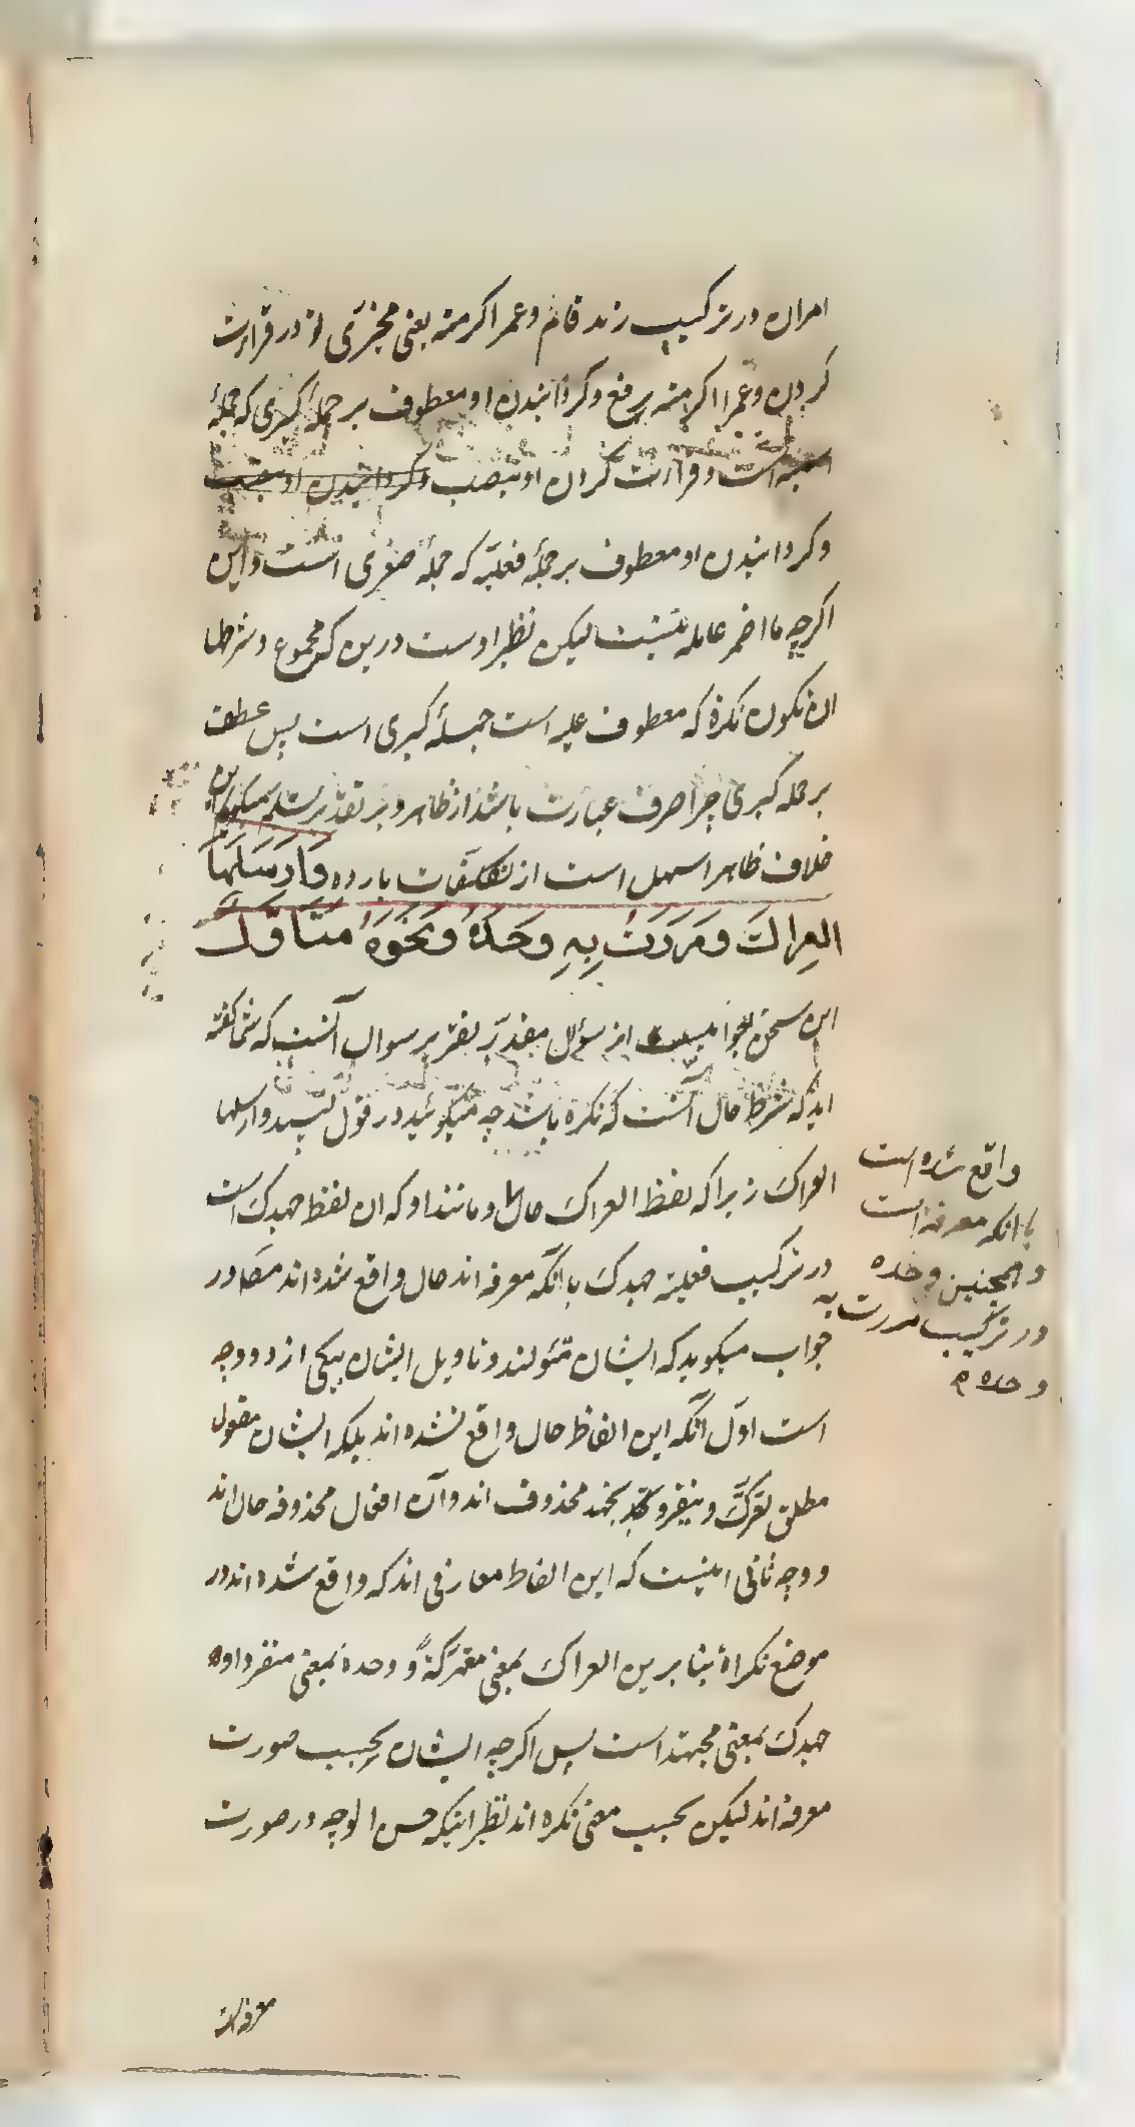 امران در ترکیب زید قام و عمرا اکرمته یعنی مخیری تو در قراءت
کردن و عمرا اکرمته برفع و کردانیدن او معطوف بر جملهٔ کبری که جملهٔ
اسمیه است و قراءت کردن او بنصب وکردانیدن او بنصب
وکردانیدن او معطوف بر جملهٔ فعلیّه که جملهٔ صغری است و این
اکرچه ما اضمر عامله نیست لیکن نظیر اوست درین که مجموع و شرطها
ان تکون نکرة که معطوف علیه است جملهٔ کبری است پس عطف
بر جمله کبری چرا صرف عبارت باشد از ظاهر و بر تقدیر تسلیم میکویم این
خلاف ظاهر اسهل است از تکلفات بارده وَاَرْسَلَهَا
العِراكَ وَمَرَرْتُ بِهِ وَحْدَهُ وَنَحْوُهُ مُتَأَوَّلٌ
این سخن جوابیست از سؤال مقدّر تقریر سوال آنست که شما کفته
اید که شرط حال آنست که نکره باشد چه میکوئید در قول لبید وارسلها
العراک زیرا که لفظ العراک حال و مانند او که ان لفظ جهدک است
در ترکیب فعلته جهدک با انکه معرفه اند حال واقع شده اند مصادر
جواب میکوید که ایشان متئولند و تاویل ایشان بیکی از دو وجه
است اوّل انکه این الفاظ حال واقع نشده اند بلکه ایشان مفعول
مطلق تعترک و ینفرد و تجتهد محذوف اند و آن افعال محذوفه حال اند
و وجه ثانی اینست که این الفاظ معارفی اند که واقع شده اند در
موضع نکرات بنا برین العراک بمعنی معترکة و وحده بمعنی منفردا و
جهدک بمعنی مجتهدا است پس اکرچه ایشان بحسب صورت
معرفه اند لیکن بحسب معنی نکره اند نظیر اینکه حسن الوجه در صورت
واقع شده است
با انکه معرفه است
و همچنین وحده
در ترکیب مررت به
وحده
معرفه است